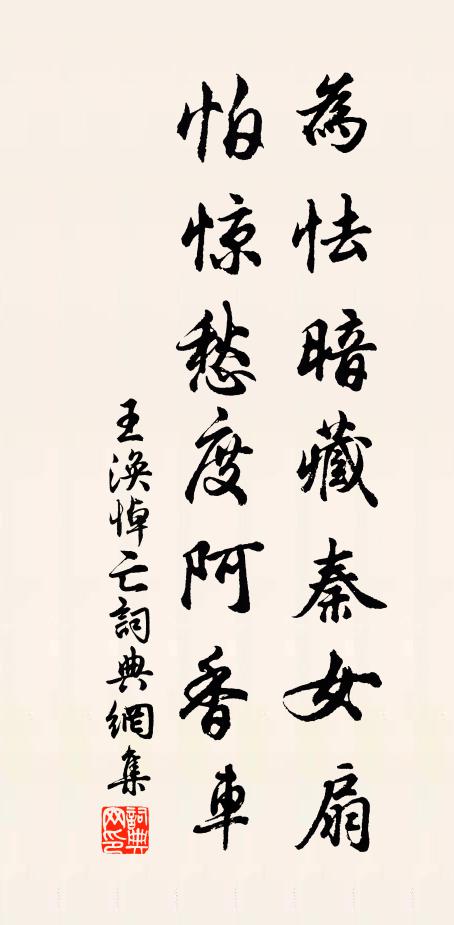 為怯暗藏秦女扇
怕惊愁度阿香車
王渙悼亡詞典網集
詞典網印